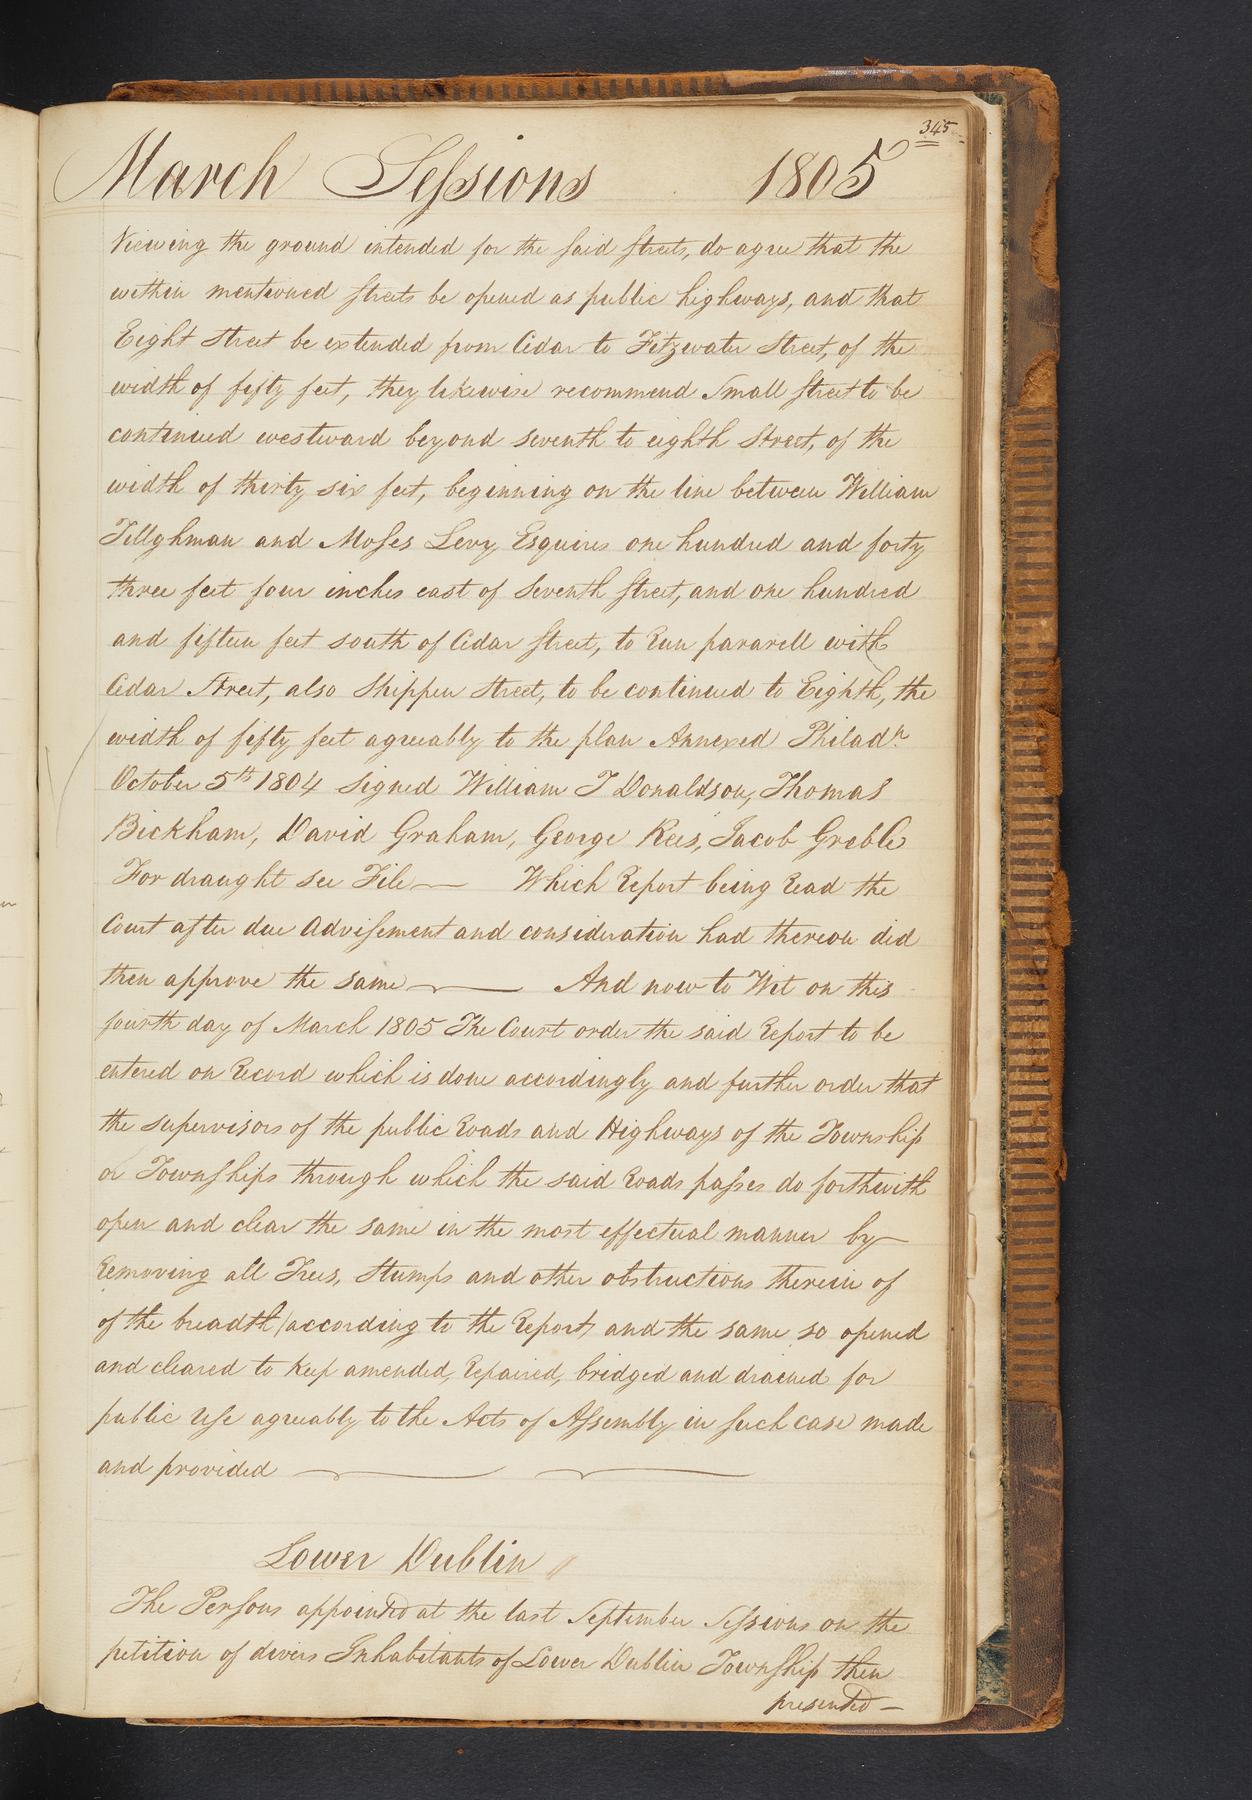 345
March Sessions 1805
Viewing the ground intended for the said streets, do agree that the
within mentioned streets be opened as public highways, and that
Eight Street be extended from Cedar to Fitzwater Street, of the
width of fifty feet, they likewise recommend Small street to be
continued westward beyond seventh to eighth Street, of the
width of thirty six feet, beginning on the line between William
Tillghman and Moses Levy Esquires one hundred and forty
three feet four inches east of Seventh street, and one hundred
and fifteen feet south of Cedar street, to Run pararell with
Cedar Street, also Shippen Street, to be continued to Eighth, the
width of fifty feet agreeably to the plan Annexed Philada
October 5th 1804 signed William T Donaldson, Thomas
Bickham, David Graham, George Rees, Jacob Greble
For draught see File — Which Report being Read the
Court after due Advisement and consideration had thereon did
then approve the same — And now to Wit on this
fourth day of March 1805 The Court order the said Report to be
entered on Record which is done accordingly and further order that
the supervisors of the public Roads and Highways of the Township
or Townships through which the said Roads passes do forthwith
open and clear the same in the most effectual manner by
Removing all Trees, Stumps and other obstructions therein of
of the breadth (according to the Report) and the same so opened
and cleared to keep amended, Repaired, bridged and drained for
public Use agreeably to the Acts of Assembly in such case made
and provided —
Lower Dublin
The Persons appointed at the last September Sessions on the
petition of divers Inhabitants of Lower Dublin Township then
presented —